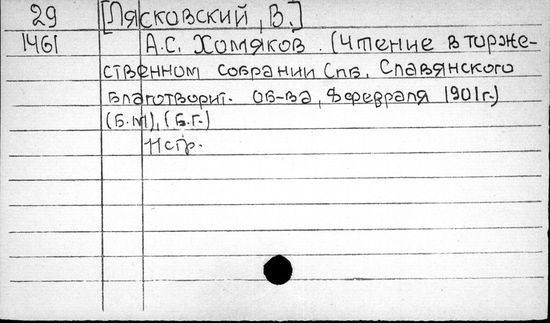 29 [Лясковский, В.]
1461 А.С. Хомяков. (Чтение в торже-
ственном собрании Спб. Славянского
Благотворит. Об-ва, февраля 1901г.)
(Б.М), (Б.Г.)
11 стр.